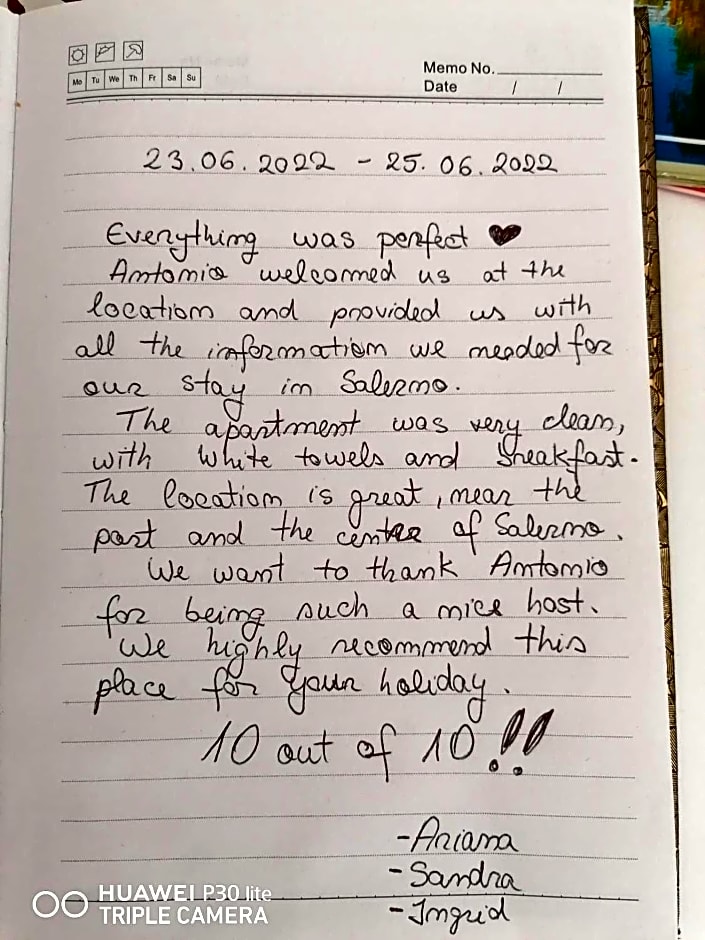 Mo Tu We Th Fr Sa Su
Memo No.
Date / /
23.06.2022 - 25.06.2022
Everything was perfect ♥
Antonio welcomed us at the
location and provided us with
all the information we needed for
our stay in Salerno.
The apartment was very clean,
with white towels and breakfast.
The location is great, near the
port and the centre of Salerno.
We want to thank Antonio
for being such a nice host.
We highly recommend this
place for your holiday.
10 out of 10!!
-Ariana
-Sandra
-Ingrid
HUAWEI P30 lite
TRIPLE CAMERA